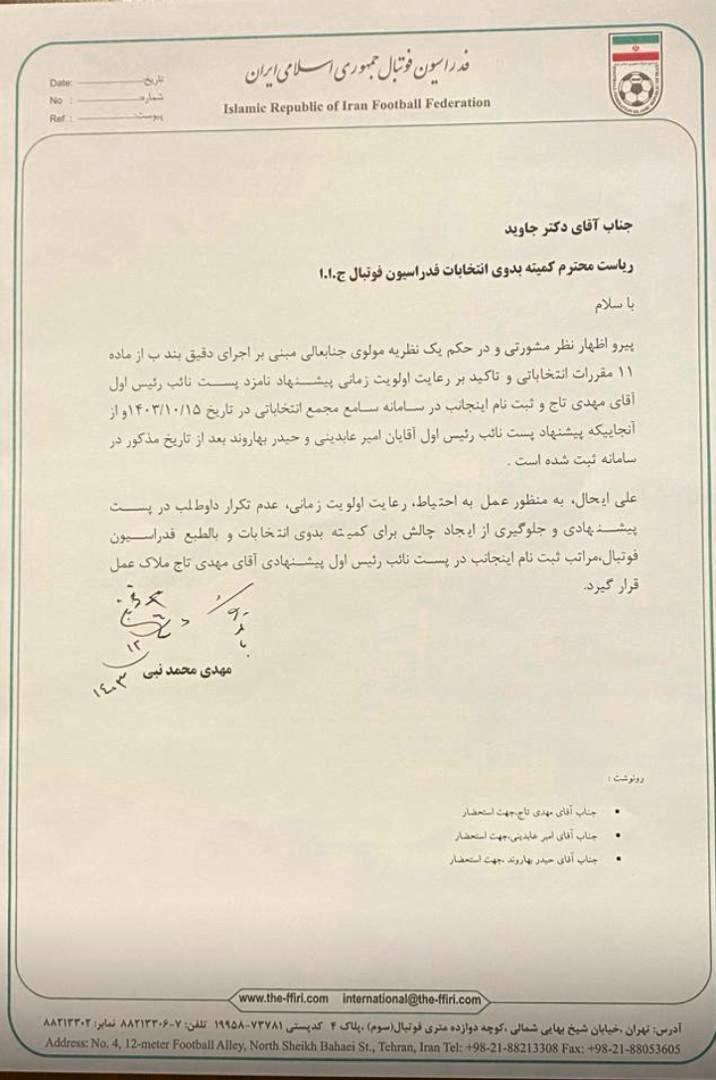 فدراسیون فوتبال جمهوری اسلامی ایران
Islamic Republic of Iran Football Federation
Date: تاریخ:
No : شماره:
Ref : پیوست:
جناب آقای دکتر جاوید
ریاست محترم کمیته بدوی انتخابات فدراسیون فوتبال ج.ا.ا
با سلام
پیرو اظهار نظر مشورتی و در حکم یک نظریه مولوی جنابعالی مبنی بر اجرای دقیق بند ب از ماده
۱۱ مقررات انتخاباتی و تاکید بر رعایت اولویت زمانی پیشنهاد نامزد پست نائب رئیس اول
آقای مهدی تاج و ثبت نام اینجانب در سامانه سامع مجمع انتخاباتی در تاریخ ۱۴۰۳/۱۰/۱۵و از
آنجاییکه پیشنهاد پست نائب رئیس اول آقایان امیر عابدینی و حیدر بهاروند بعد از تاریخ مذکور در
سامانه ثبت شده است .
علی ایحال، به منظور عمل به احتیاط، رعایت اولویت زمانی، عدم تکرار داوطلب در پست
پیشنهادی و جلوگیری از ایجاد چالش برای کمیته بدوی انتخابات و بالطبع فدراسیون
فوتبال،مراتب ثبت نام اینجانب در پست نائب رئیس اول پیشنهادی آقای مهدی تاج ملاک عمل
قرار گیرد.
مهدی محمد نبی
۱۴۰۳
رونوشت :
• جناب آقای مهدی تاج،جهت استحضار
• جناب آقای امیر عابدینی،جهت استحضار
• جناب آقای حیدر بهاروند ،جهت استحضار
www.the-ffiri.com international@the-ffiri.com
آدرس: تهران ،خیابان شیخ بهایی شمالی ،کوچه دوازده متری فوتبال(سوم) ،پلاک ۴ کدپستی ۷۳۷۸۱-۱۹۹۵۸ تلفن: ۷-۸۸۲۱۳۳۰۶ نمابر: ۸۸۲۱۳۳۰۲
Address: No. 4, 12-meter Football Alley, North Sheikh Bahaei St., Tehran, Iran Tel: +98-21-88213308 Fax: +98-21-88053605